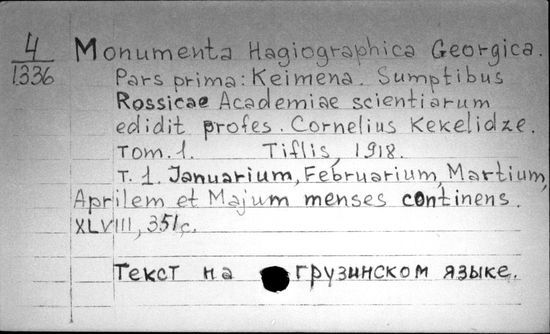 4
1336
Monumenta Hagiographica Georgica.
Pars prima: Keimena. Sumptibus
Rossicae Academiae scientiarum
edidit profes. Cornelius Kekelidze.
Tom. 1. Tiflis, 1918.
T. 1. Januarium, Februarium, Martium,
Aprilem et Majum menses continens.
XLVIII, 351 с.
Текст на грузинском языке.